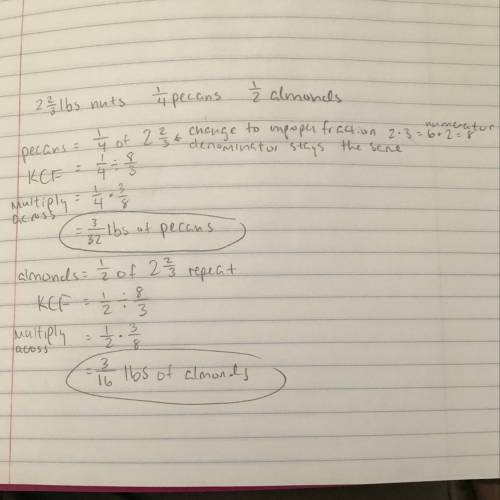 2 2/3 lbs nuts 1/4 pecans 1/2 almonds
pecans = 1/4 of 2 2/3 ← change to improper fraction 2·3=6+2=8 numerator
denominator stays the same
KCF = 1/4 ÷ 8/3
multiply across = 1/4 · 3/8
= 3/32 lbs of pecans
almonds = 1/2 of 2 2/3 repeat
KCF = 1/2 ÷ 8/3
multiply across = 1/2 · 3/8
= 3/16 lbs of almonds